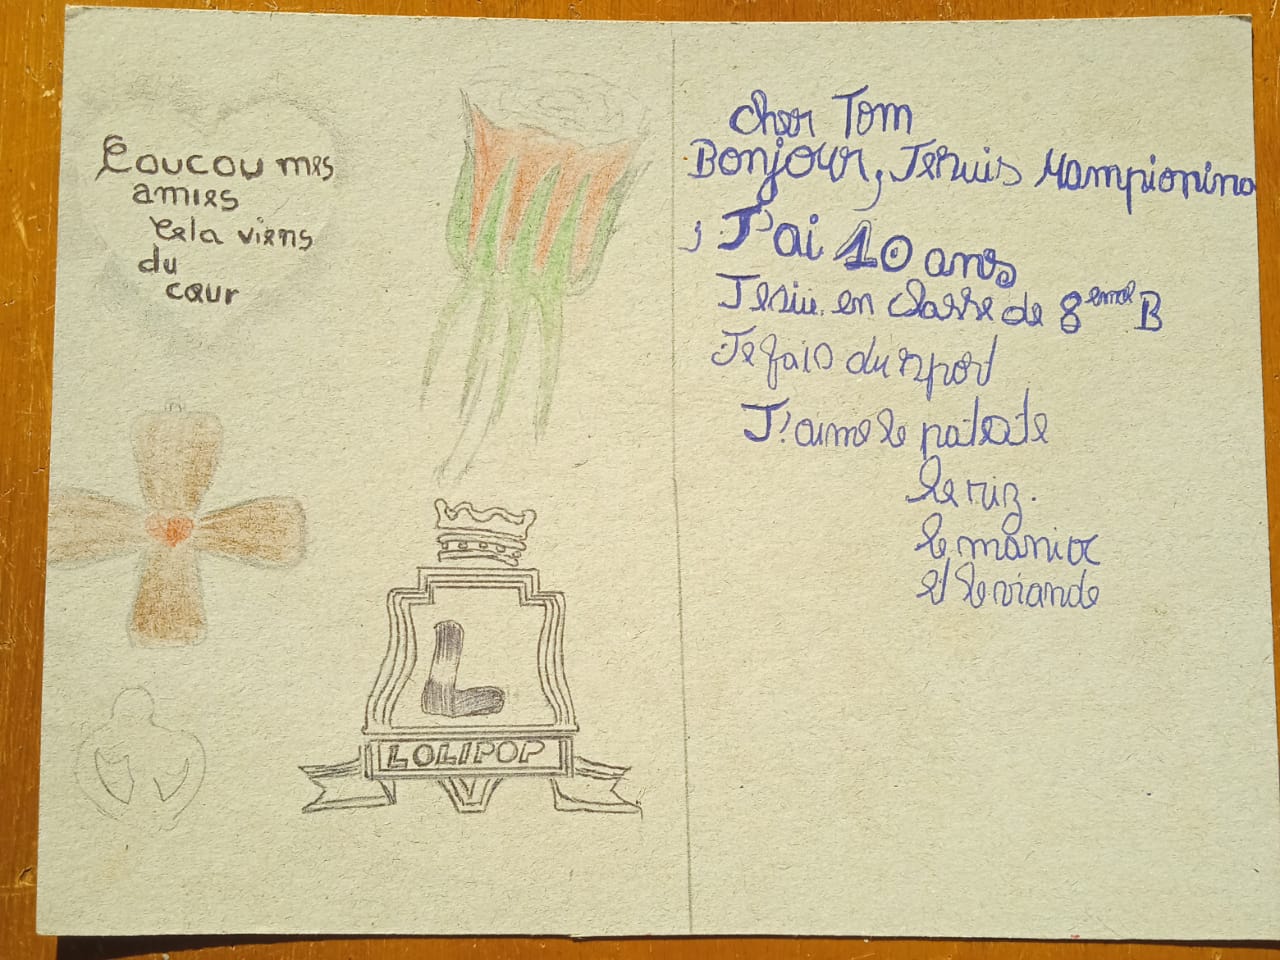 Coucou mes
amies
Cela viens
du
cœur
L
LOLIPOP
cher Tom
Bonjour, Je suis Mampionina
, J'ai 10 ans
Je sui en classe de 8ème B
Je fais du sport
J'aime le patate
le riz.
le manioc
et le viande